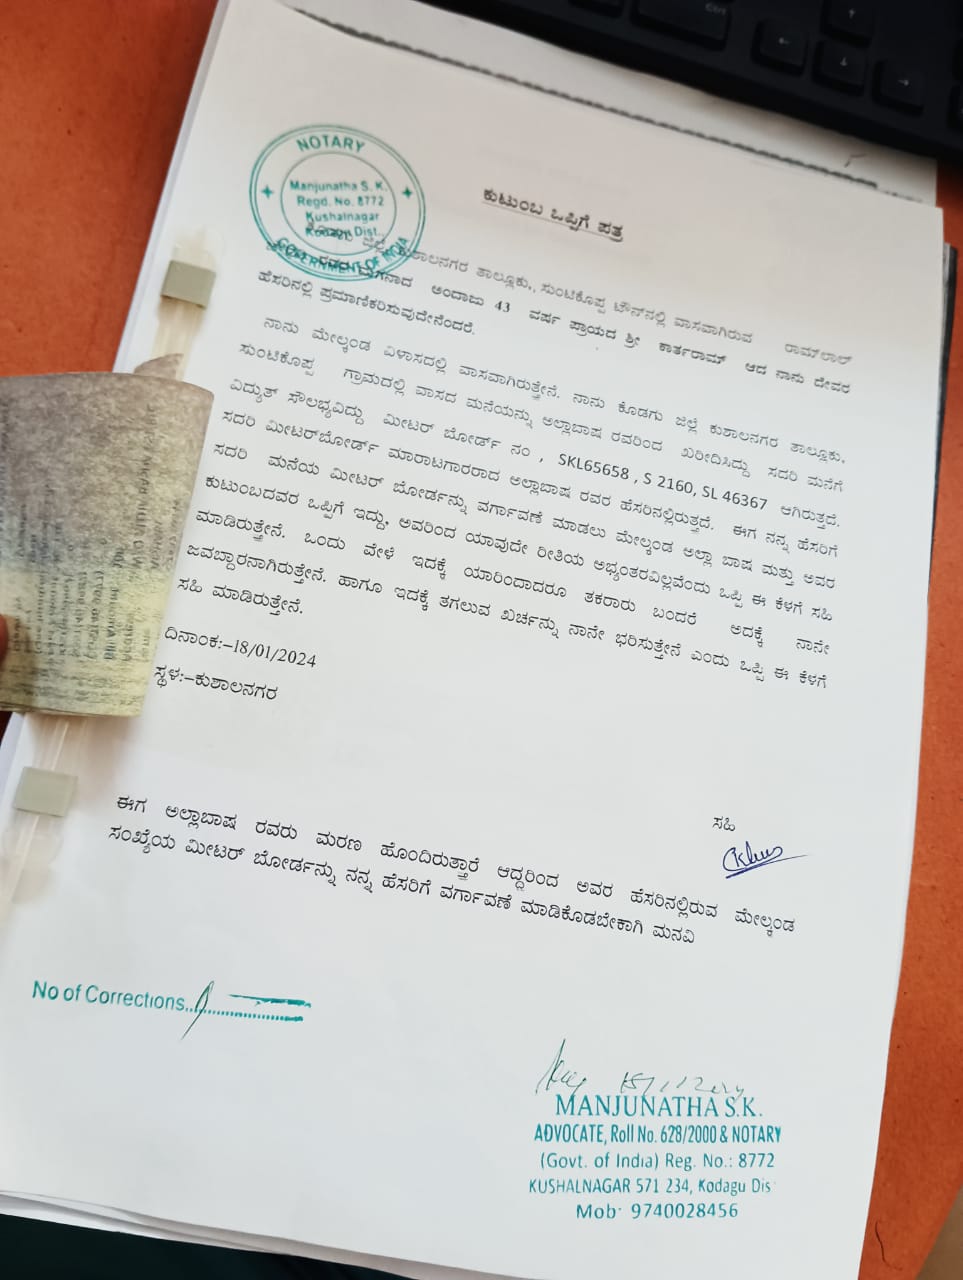 NOTARY
Manjunatha S. K.
Regd. No. 8772
Kushalnagar
Kodagu Dist.
GOVERNMENT OF INDIA
ಕುಟುಂಬ ಒಪ್ಪಿಗೆ ಪತ್ರ
ಜಿಲ್ಲೆ ಕುಶಾಲನಗರ ತಾಲ್ಲೂಕು, ಸುಂಟಿಕೊಪ್ಪ ಟೌನ್‌ನಲ್ಲಿ ವಾಸವಾಗಿರುವ ರಾಮ್‌ಲಾಲ್
ರವರ ಮಗನಾದ ಅಂದಾಜು 43 ವರ್ಷ ಪ್ರಾಯದ ಶ್ರೀ ಕಾರ್ತರಾಮ್ ಆದ ನಾನು ದೇವರ
ಹೆಸರಿನಲ್ಲಿ ಪ್ರಮಾಣಿಕರಿಸುವುದೇನೆಂದರೆ.
ನಾನು ಮೇಲ್ಕಂಡ ವಿಳಾಸದಲ್ಲಿ ವಾಸವಾಗಿರುತ್ತೇನೆ. ನಾನು ಕೊಡಗು ಜಿಲ್ಲೆ ಕುಶಾಲನಗರ ತಾಲ್ಲೂಕು,
ಸುಂಟಿಕೊಪ್ಪ ಗ್ರಾಮದಲ್ಲಿ ವಾಸದ ಮನೆಯನ್ನು ಅಲ್ಲಾಬಾಷ ರವರಿಂದ ಖರೀದಿಸಿದ್ದು ಸದರಿ ಮನೆಗೆ
ವಿದ್ಯುತ್ ಸೌಲಭ್ಯವಿದ್ದು ಮೀಟರ್ ಬೋರ್ಡ್ ನಂ , SKL65658 , S 2160, SL 46367 ಆಗಿರುತ್ತದೆ.
ಸದರಿ ಮೀಟರ್‌ಬೋರ್ಡ್ ಮಾರಾಟಗಾರರಾದ ಅಲ್ಲಾಬಾಷ ರವರ ಹೆಸರಿನಲ್ಲಿರುತ್ತದೆ. ಈಗ ನನ್ನ ಹೆಸರಿಗೆ
ಸದರಿ ಮನೆಯ ಮೀಟರ್ ಬೋರ್ಡನ್ನು ವರ್ಗಾವಣೆ ಮಾಡಲು ಮೇಲ್ಕಂಡ ಅಲ್ಲಾ ಬಾಷ ಮತ್ತು ಅವರ
ಕುಟುಂಬದವರ ಒಪ್ಪಿಗೆ ಇದ್ದು, ಅವರಿಂದ ಯಾವುದೇ ರೀತಿಯ ಅಭ್ಯಂತರವಿಲ್ಲವೆಂದು ಒಪ್ಪಿ ಈ ಕೆಳಗೆ ಸಹಿ
ಮಾಡಿರುತ್ತೇನೆ. ಒಂದು ವೇಳೆ ಇದಕ್ಕೆ ಯಾರಿಂದಾದರೂ ತಕರಾರು ಬಂದರೆ ಅದಕ್ಕೆ ನಾನೇ
ಜವಬ್ದಾರನಾಗಿರುತ್ತೇನೆ. ಹಾಗೂ ಇದಕ್ಕೆ ತಗಲುವ ಖರ್ಚನ್ನು ನಾನೇ ಭರಿಸುತ್ತೇನೆ ಎಂದು ಒಪ್ಪಿ ಈ ಕೆಳಗೆ
ಸಹಿ ಮಾಡಿರುತ್ತೇನೆ.
ದಿನಾಂಕ:-18/01/2024
ಸ್ಥಳ:-ಕುಶಾಲನಗರ
ಸಹಿ
ಈಗ ಅಲ್ಲಾಬಾಷ ರವರು ಮರಣ ಹೊಂದಿರುತ್ತಾರೆ ಆದ್ದರಿಂದ ಅವರ ಹೆಸರಿನಲ್ಲಿರುವ ಮೇಲ್ಕಂಡ
ಸಂಖ್ಯೆಯ ಮೀಟರ್ ಬೋರ್ಡನ್ನು ನನ್ನ ಹೆಸರಿಗೆ ವರ್ಗಾವಣೆ ಮಾಡಿಕೊಡಬೇಕಾಗಿ ಮನವಿ
No of Corrections..
MANJUNATHA S.K.
ADVOCATE, Roll No. 628/2000 & NOTARY
(Govt. of India) Reg. No.: 8772
KUSHALNAGAR 571 234, Kodagu Dis
Mob: 9740028456